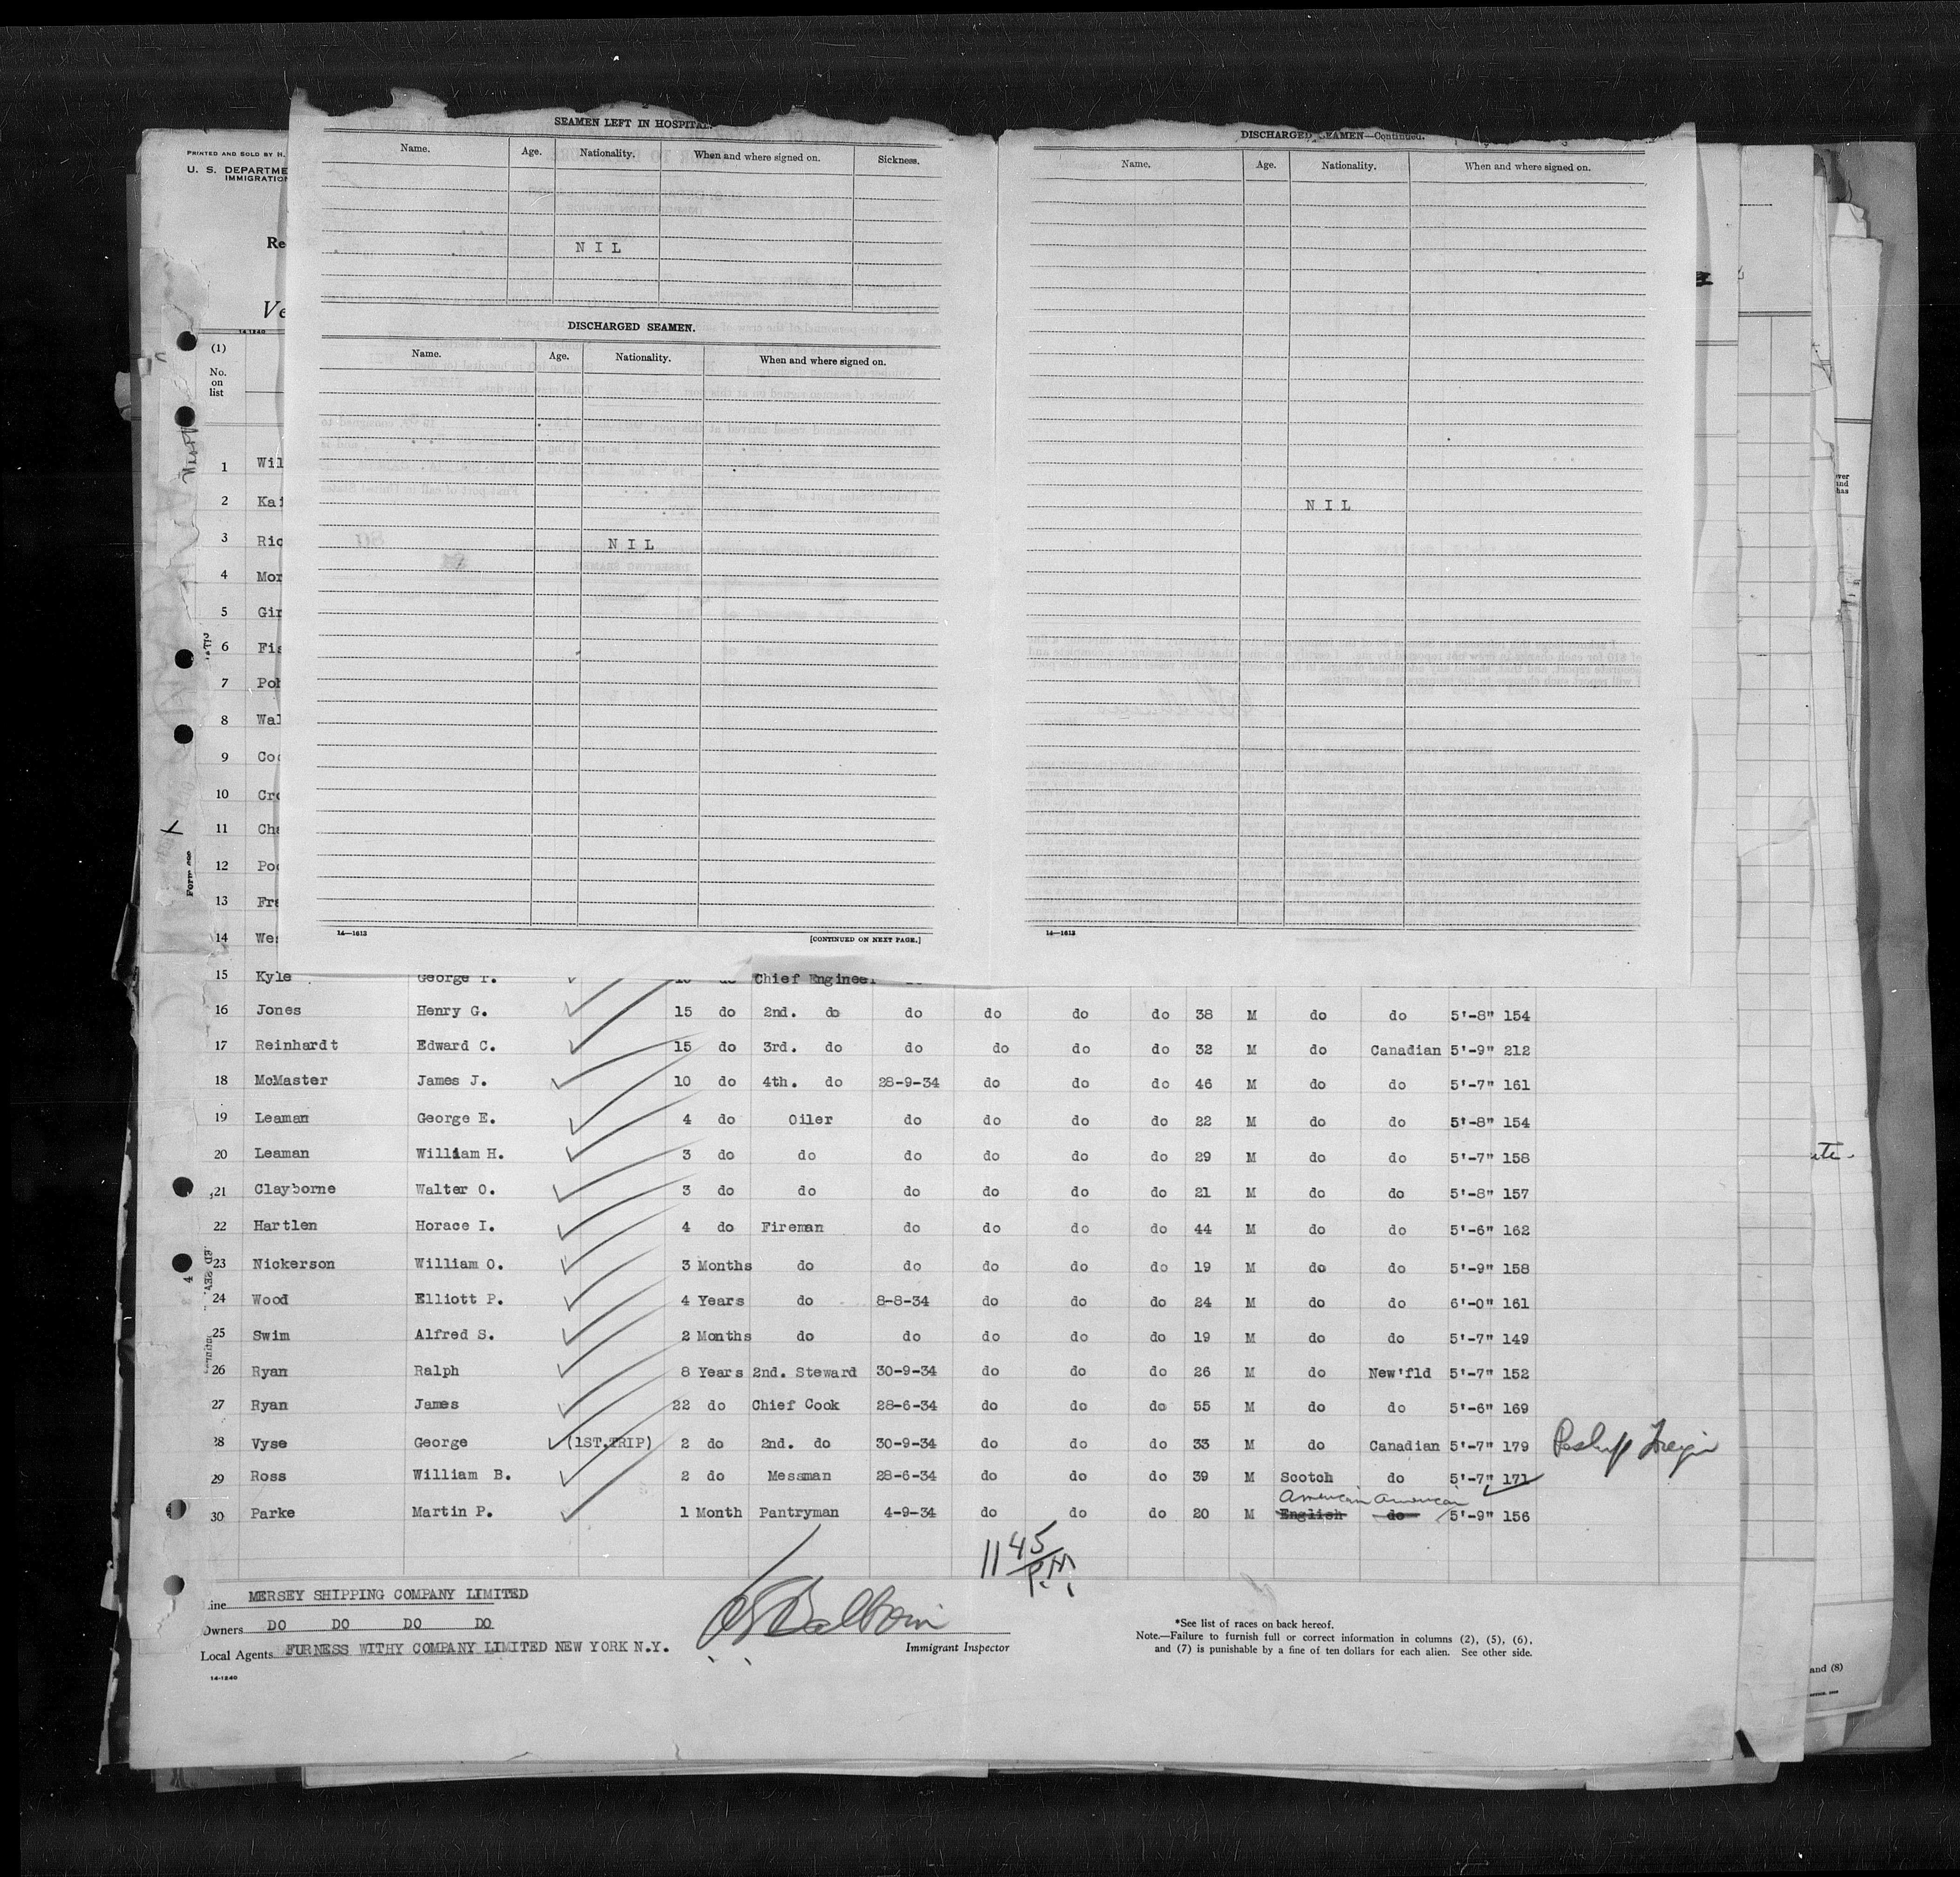 SEAMEN LEFT IN HOSPITAL.
Name. Age. Nationality. When and where signed on. Sickness.
NIL
DISCHARGED SEAMEN.
Name. Age. Nationality. When and where signed on.
NIL
14—1613 [CONTINUED ON NEXT PAGE.]
DISCHARGED SEAMEN—Continued.
Name. Age. Nationality. When and where signed on.
NIL
14—1613
PRINTED AND SOLD BY H.
U. S. DEPARTME
IMMIGRATION
Re
Ve
14 1240
(1)
No.
on
list
1 Wil
2 Kai
3 Ric
4 Mor
5 Gin
6 Fis
7 Poh
8 Wal
9 Coo
10 Cro
11 Cha
12 Poo
13 Fra
14 Wes
15 Kyle George T. Chief Engineer
16 Jones Henry G. 15 do 2nd. do do do do do 38 M do do 5'-8" 154
17 Reinhardt Edward C. 15 do 3rd. do do do do do 32 M do Canadian 5'-9" 212
18 McMaster James J. 10 do 4th. do 28-9-34 do do do 46 M do do 5'-7" 161
19 Leaman George E. 4 do Oiler do do do do 22 M do do 5'-8" 154
20 Leaman William H. 3 do do do do do do 29 M do do 5'-7" 158
21 Clayborne Walter O. 3 do do do do do do 21 M do do 5'-8" 157
22 Hartlen Horace I. 4 do Fireman do do do do 44 M do do 5'-6" 162
23 Nickerson William O. 3 Months do do do do do 19 M do do 5'-9" 158
24 Wood Elliott P. 4 Years do 8-8-34 do do do 24 M do do 6'-0" 161
25 Swim Alfred S. 2 Months do do do do do 19 M do do 5'-7" 149
26 Ryan Ralph 8 Years 2nd. Steward 30-9-34 do do do 26 M do New'fld 5'-7" 152
27 Ryan James 22 do Chief Cook 28-6-34 do do do 55 M do do 5'-6" 169
28 Vyse George (1ST.TRIP) 2 do 2nd. do 30-9-34 do do do 33 M do Canadian 5'-7" 179
29 Ross William B. 2 do Messman 28-6-34 do do do 39 M Scotch do 5'-7" 171
American American
30 Parke Martin P. 1 Month Pantryman 4-9-34 do do do 20 M English do 5'-9" 156
11 45 P.M.
Line MERSEY SHIPPING COMPANY LIMITED
Owners DO DO DO DO
Local Agents FURNESS WITHY COMPANY LIMITED NEW YORK N.Y.
14-1240
Immigrant Inspector
*See list of races on back hereof.
Note.—Failure to furnish full or correct information in columns (2), (5), (6),
and (7) is punishable by a fine of ten dollars for each alien. See other side.
and (8)